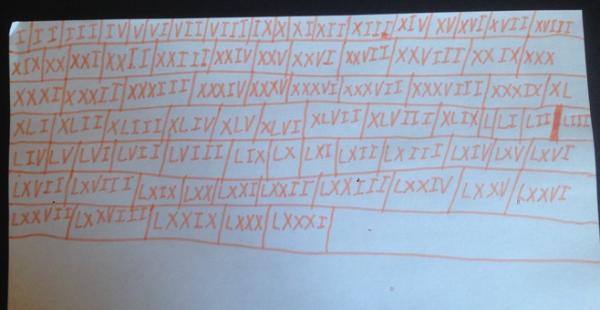 I II III IV V VI VII VIII IX X XI XII XIII XIV XV XVI XVII XVIII
XIX XX XXI XXII XXIII XXIV XXV XXVI XXVII XXVIII XXIX XXX
XXXI XXXII XXXIII XXXIV XXXV XXXVI XXXVII XXXVIII XXXIX XL
XLI XLII XLIII XLIV XLV XLVI XLVII XLVIII XLIX L LI LII LIII
LIV LV LVI LVII LVIII LIX LX LXI LXII LXIII LXIV LXV LXVI
LXVII LXVIII LXIX LXX LXXI LXXII LXXIII LXXIV LXXV LXXVI
LXXVII LXXVIII LXXIX LXXX LXXXI